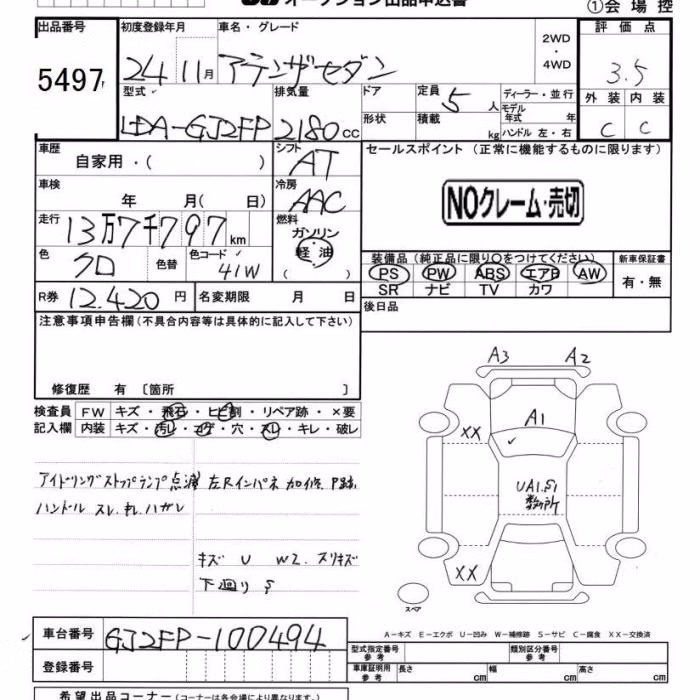 オークション出品申込書
①会場控
出品番号 初度登録年月 車名・グレード 2WD・4WD 評価点
5497 24 11月 アテンザセダン 3.5
型式 排気量 ドア 定員 5人 ディーラー・並行 外装 内装
LDA-GJ2FP 2180cc 形状 積載 kg モデル年式 年 ハンドル 左・右 C C
車歴 自家用・( ) シフト AT セールスポイント (正常に機能するものに限ります)
車検 年 月( 日) 冷房 AAC NOクレーム・売切
走行 13万7千797km 燃料 ガソリン 軽油 ( )
色 クロ 色替 色コード 41W 装備品(純正品に限り○をつけてください) 新車保証書
PS PW ABS エアB AW 有・無
SR ナビ TV カワ
R券 12.420円 名変期限 月 日 後日品
注意事項申告欄(不具合内容等は具体的に記入して下さい)
修復歴 有 〔箇所 〕
検査員 FW キズ・飛石・ヒビ割・リペア跡・×要
記入欄 内装 キズ・汚レ・コゲ・穴・スレ・キレ・破レ
アイドリングストップランプ点滅 左Rインパネ加修、P跡
ハンドル スレ、キレ、ハガレ
キズ U W2. スリキズ
下廻り S
A3 A2
A1
XX
UA1.S1
数ヶ所
XX
スペア
A-キズ E-エクボ U-凹み W-補修跡 S-サビ C-腐食 XX-交換済
車台番号 GJ2FP-100494 型式指定番号 参考 類別区分番号 参考
登録番号 車庫証明用 参考 長さ cm 幅 cm 高さ cm
希望出品コーナー(コーナーは各会場により異なります。)